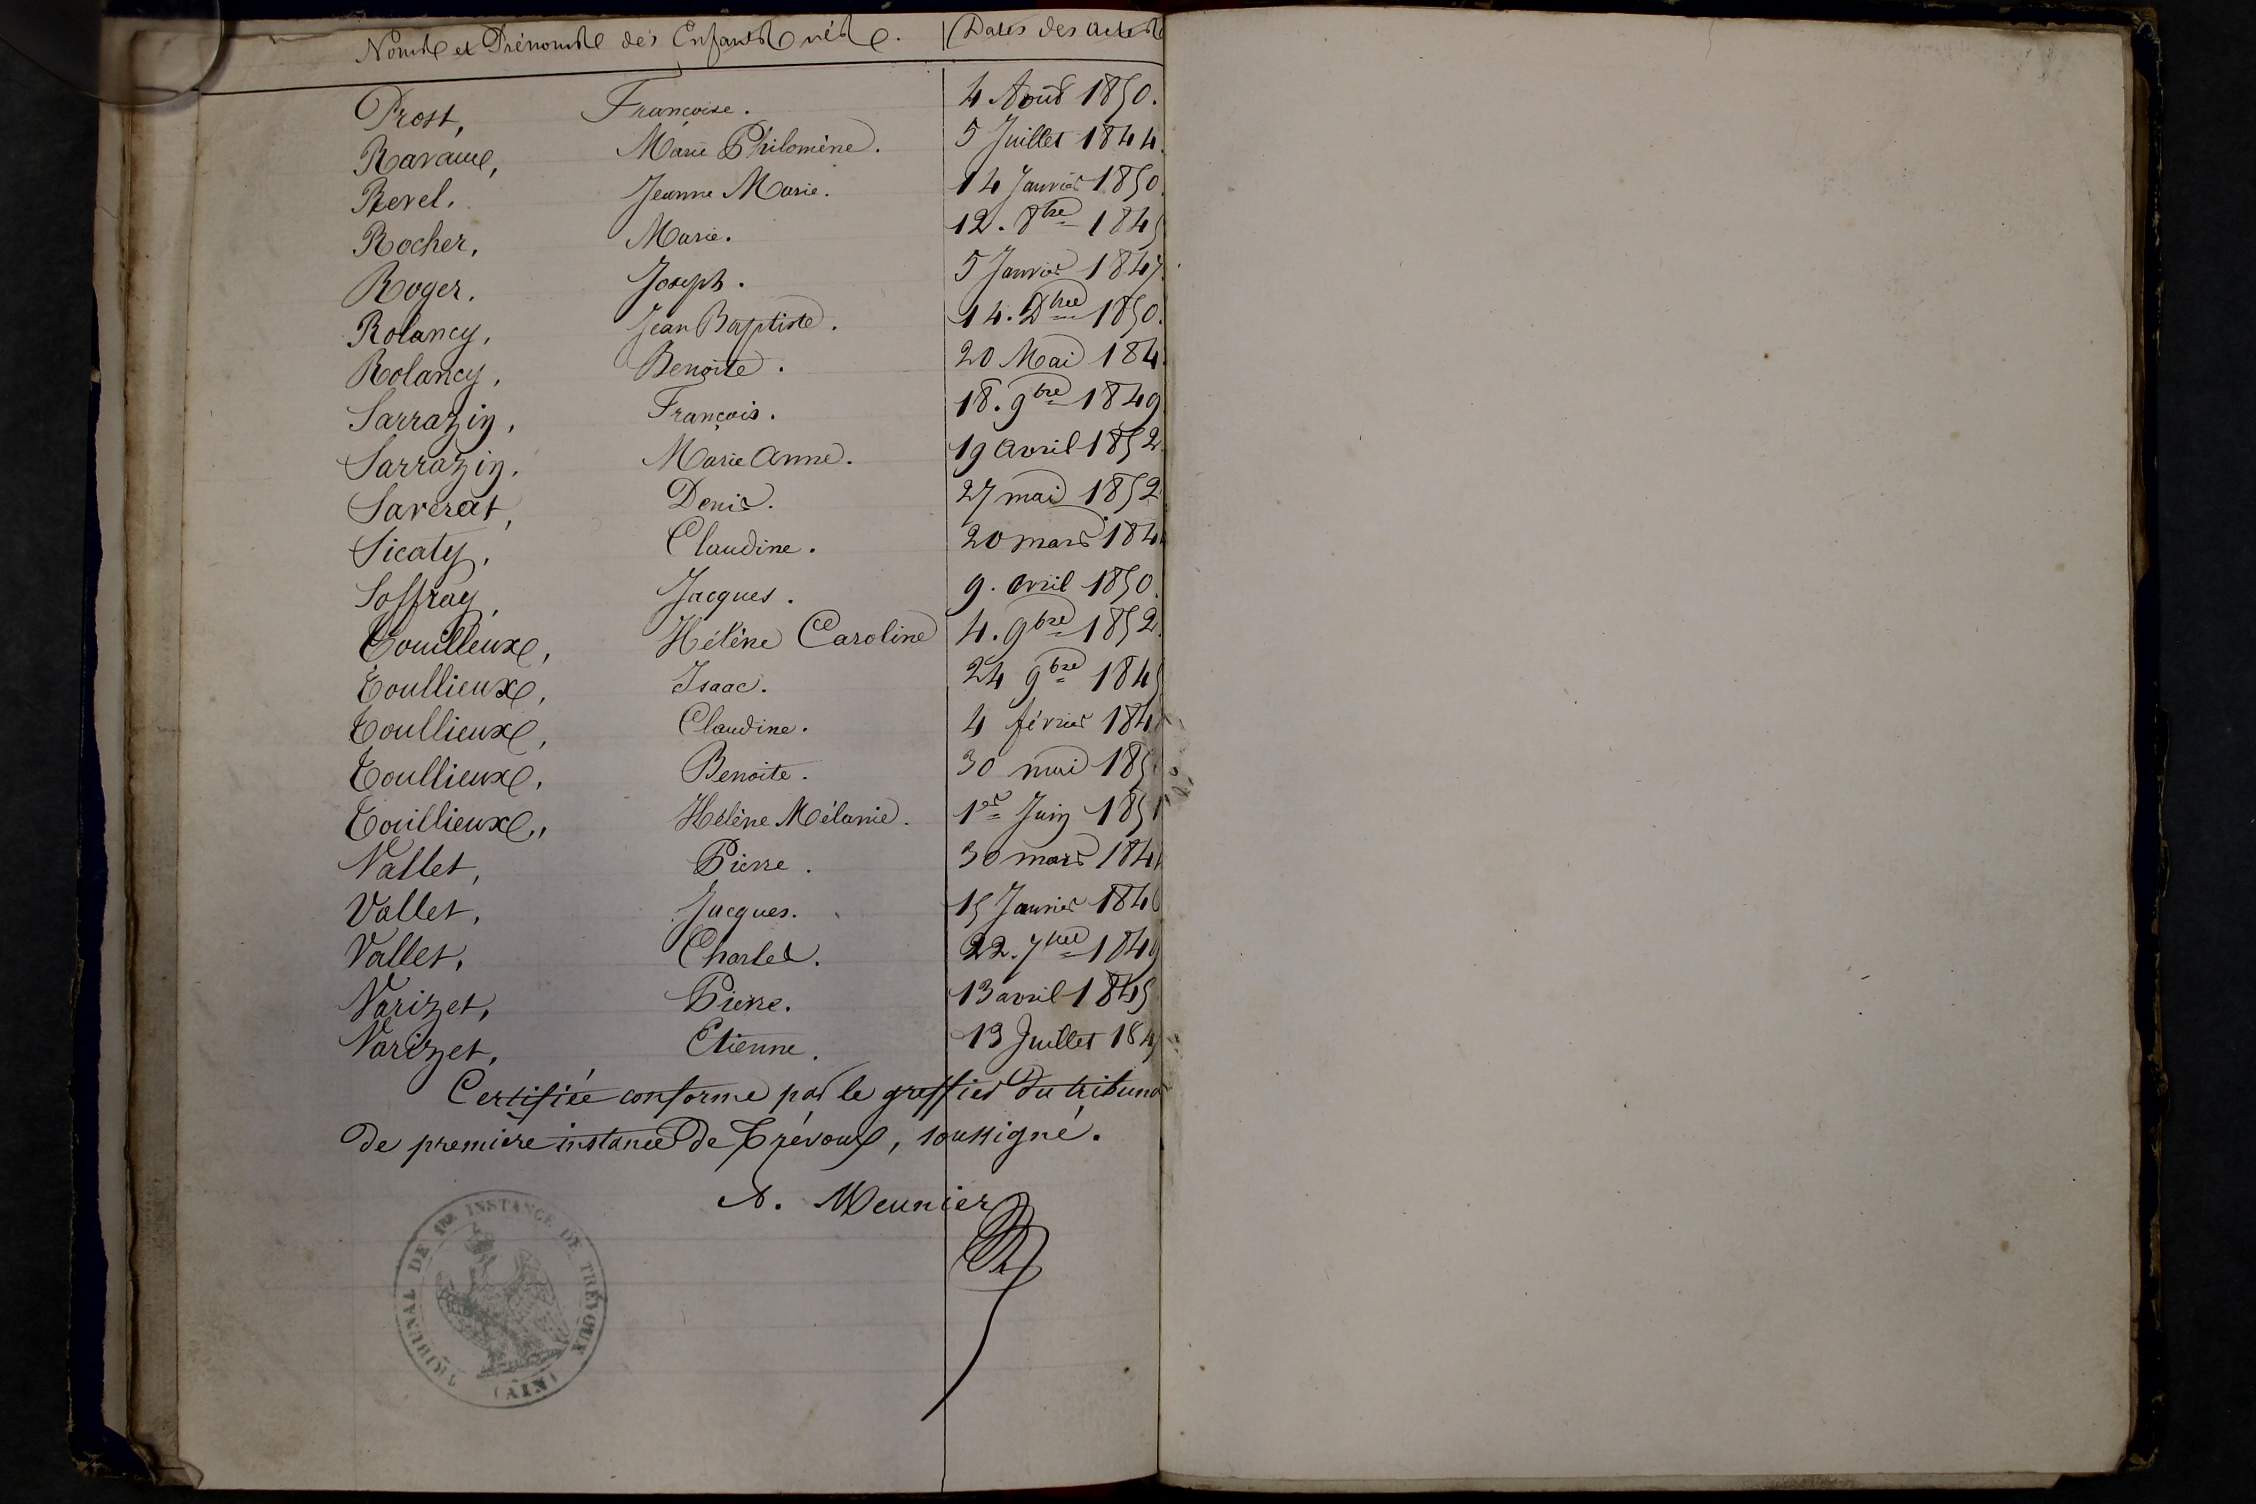 Noms et Prénoms des Enfants nés. Dates des actes
Prost, Françoise. 4 Août 1850.
Ravaux, Marie Philomène. 5 Juillet 1844.
Revel. Jeanne Marie. 14 Janvier 1850.
Rocher, Marie. 12. 8bre 1845
Roger. Joseph. 5 Janvier 1847.
Rolancy, Jean Baptiste. 14. Dbre 1850.
Rolancy, Benoite. 20 Mai 184
Sarrazin, François. 18. 9bre 1849
Sarrazin. Marie Anne. 19 avril 1852
Saverat, Denis. 27 mai 1852
Sicaty, Claudine. 20 mars 184
Soffray, Jacques. 9. avril 1850.
Touilleux, Hélène Caroline 4. 9bre 1852.
Toullieux, Isaac. 24 9bre 1845
Toullieux, Claudine. 4 février 184
Toullieux, Benoite. 30 mai 185
Touillieux, Hélène Mélanie. 1er Juin 1851
Vallet, Pierre. 30 mars 184
Vallet, Jacques. 15 Janvier 1846
Vallet, Charles. 22. 7bre 1849
Varizet, Pierre. 13 avril 1845
Varizet, Etienne. 13 Juillet 184
Certifiée conforme par le greffier du tribunal
de première instance de Trévoux, soussigné.
A. Meunier
TRIBUNAL DE 1RE INSTANCE DE TREVOUX
(AIN)